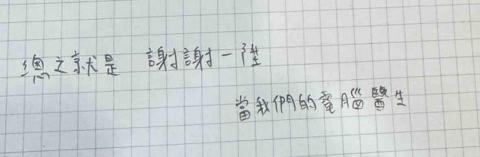 總之就是 謝謝一陞
當我們的電腦醫生